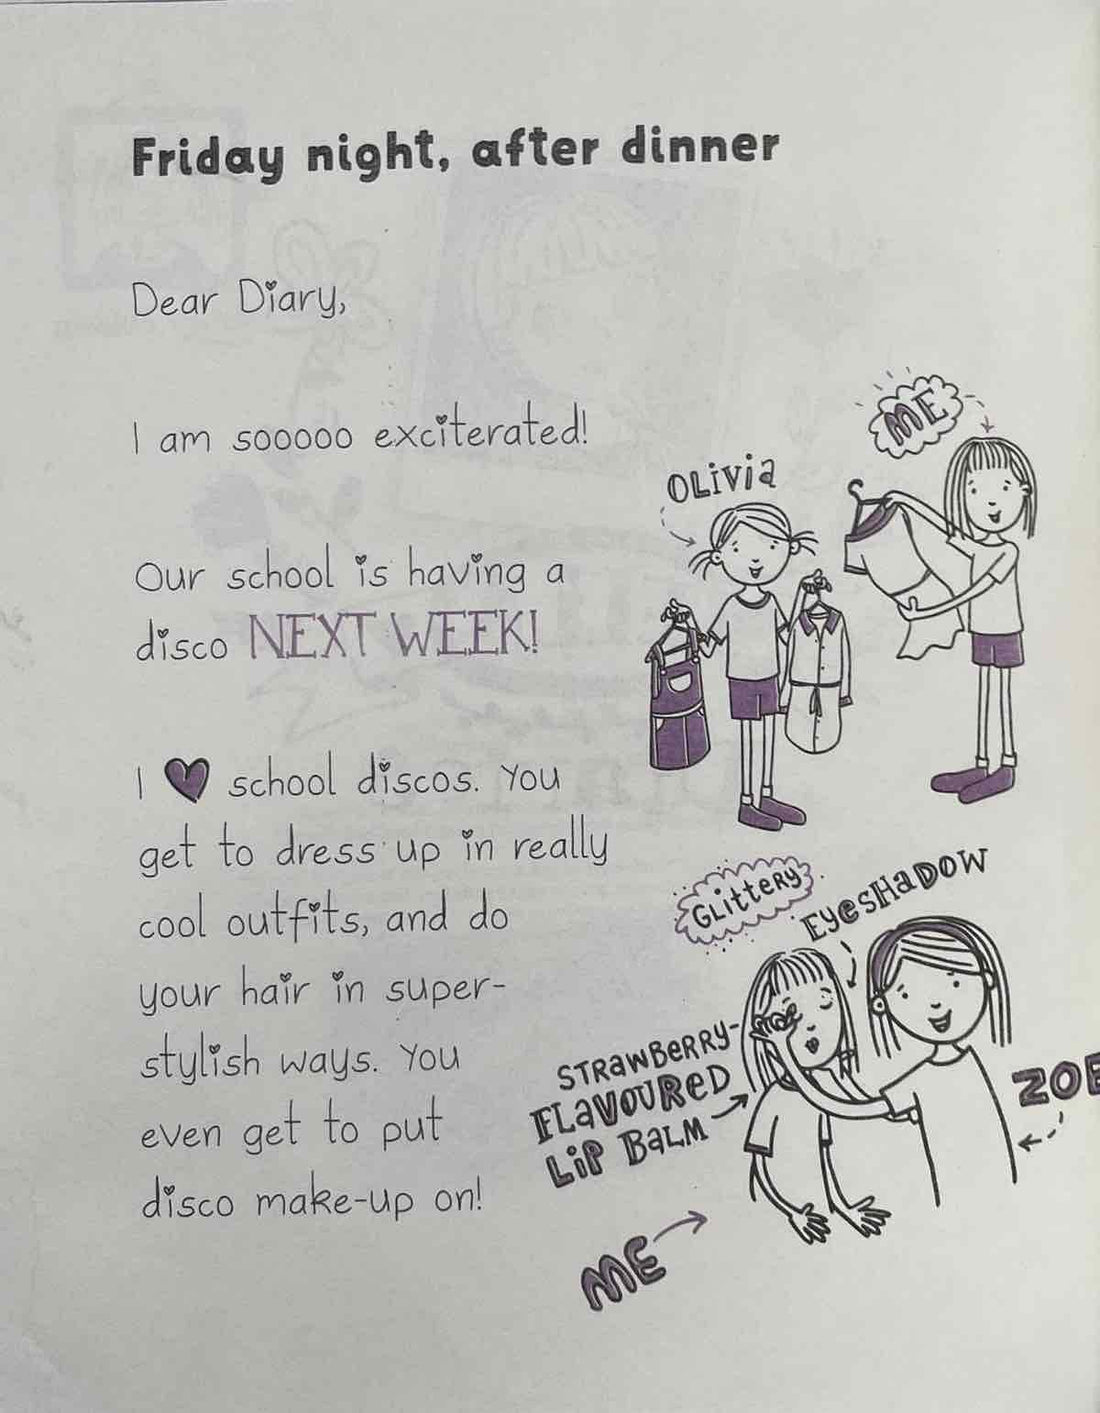 Friday night, after dinner
Dear Diary,
I am sooooo exciterated!
Our school is having a
disco NEXT WEEK!
I ♥ school discos. You
get to dress up in really
cool outfits, and do
your hair in super-
stylish ways. You
even get to put
disco make-up on!
OLiViA
ME
GLitteRY
EYeSHaDOW
STRaWBeRRY-
FLaVOUReD
LiP BaLM
ZOE
ME